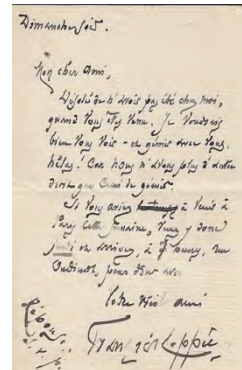 Dimanche soir.
Mon cher ami,
Désolé de n'avois pas été chez moi,
quand vous êtes venu. Je voudrais
bien vous voir - et gémir avec vous,
hélas! Car nous n'avons plus d'autre
droit que celui de gémir.
Si vous aviez à venir à
Paris cette semaine, venez y donc
jeudi et arrivez, à heures, rue
Oudinot, pour dîner avec
Votre vieil ami
François Coppée